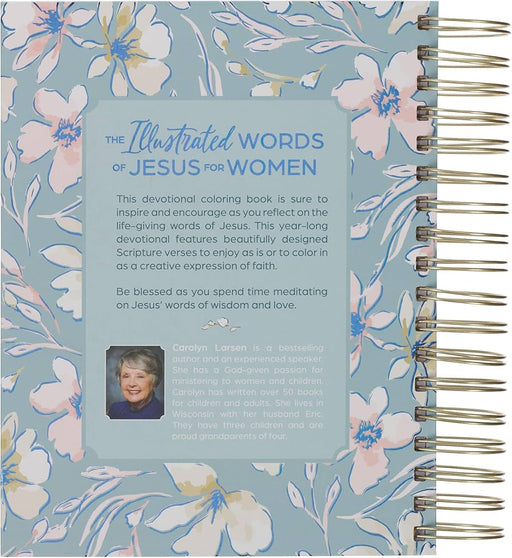 THE Illustrated WORDS
OF JESUS FOR WOMEN
This devotional coloring book is sure to
inspire and encourage as you reflect on the
life-giving words of Jesus. This year-long
devotional features beautifully designed
Scripture verses to enjoy as is or to color in
as a creative expression of faith.
Be blessed as you spend time meditating
on Jesus' words of wisdom and love.
Carolyn Larsen is a bestselling
author and an experienced speaker.
She has a God-given passion for
ministering to women and children.
Carolyn has written over 50 books
for children and adults. She lives in
Wisconsin with her husband Eric.
They have three children and are
proud grandparents of four.